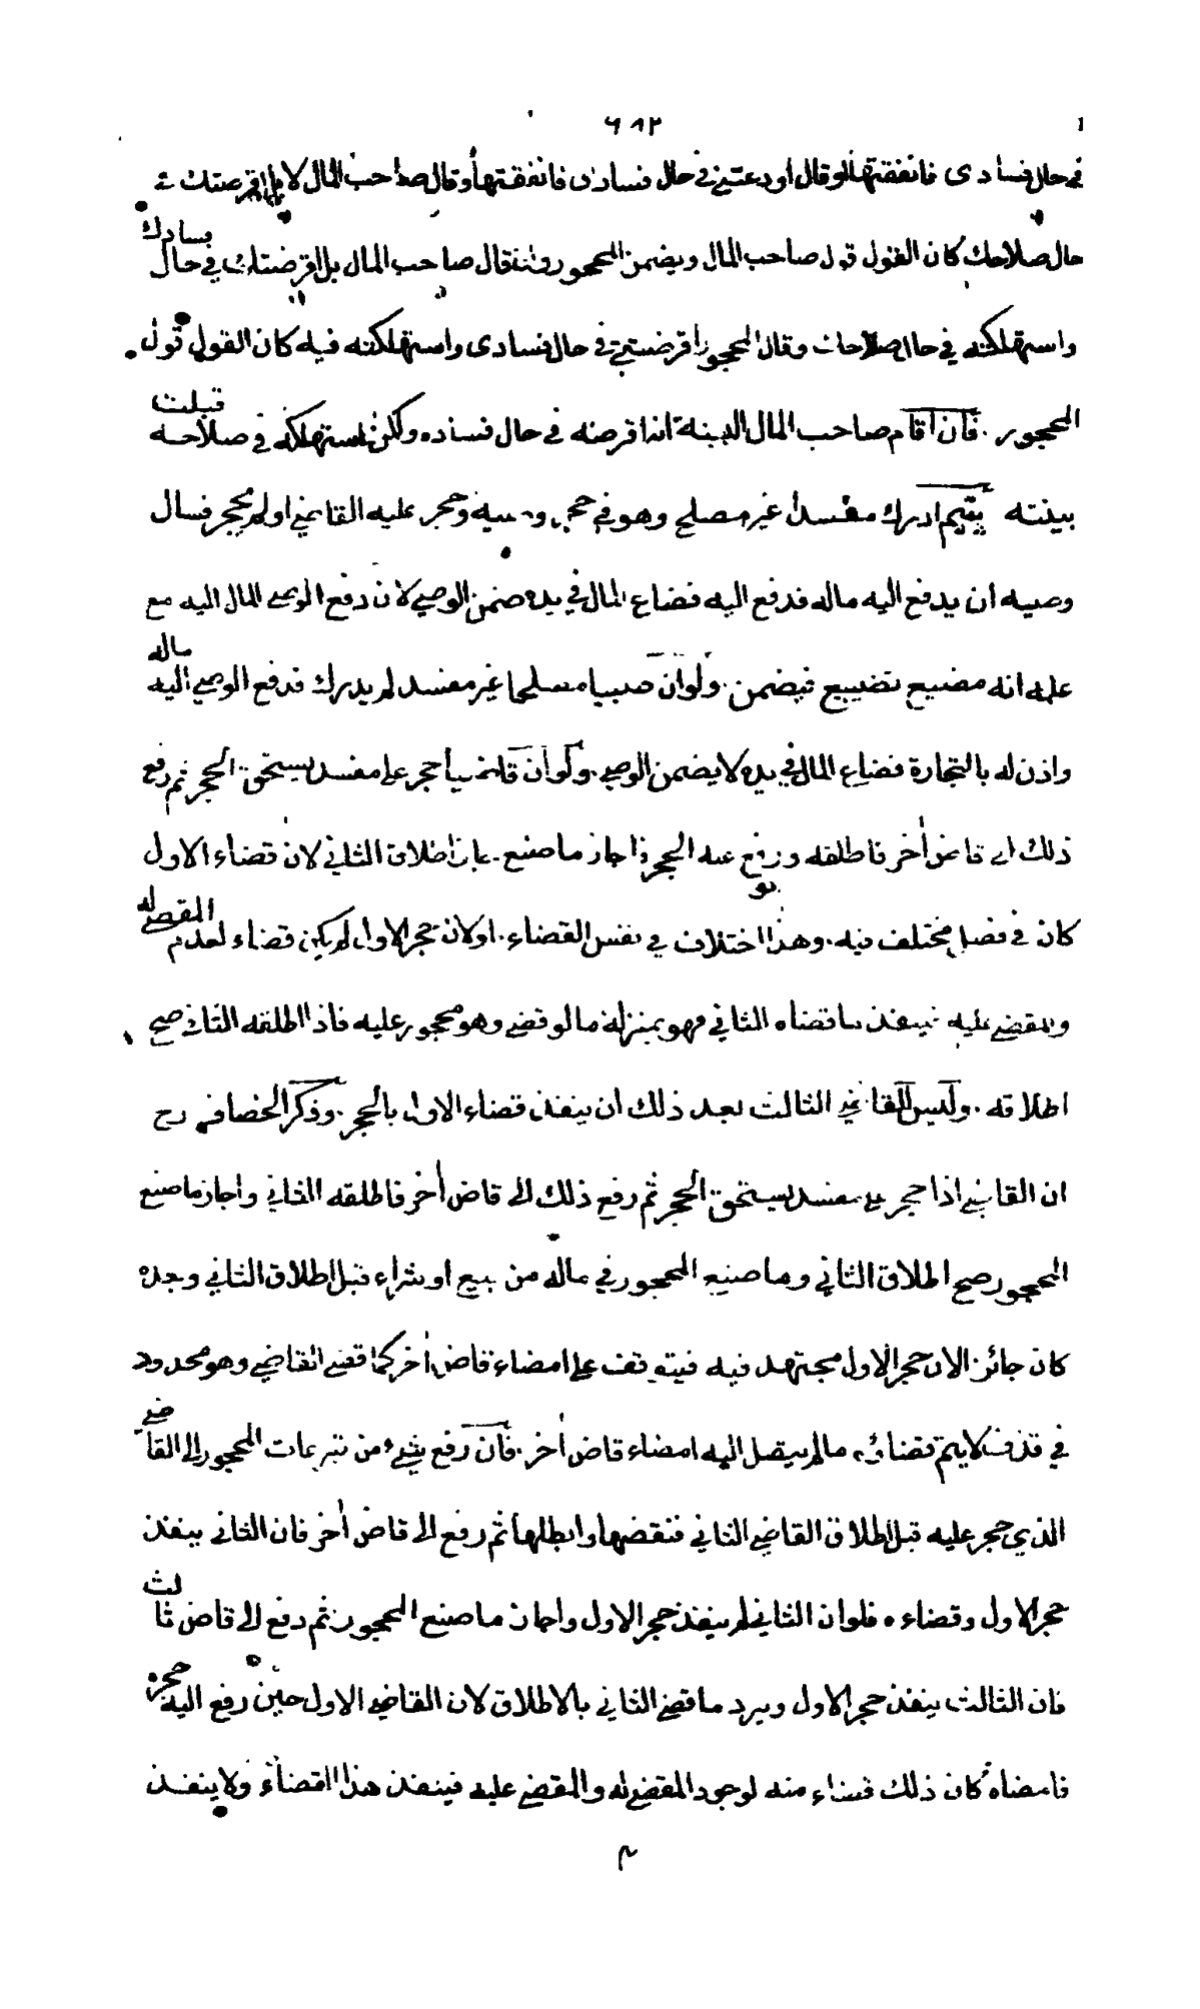 ٦٨٢
في حال فسادى فانفقتها او قال اودعتني في حال فسادى فانفقتها وقال صاحب المال لا بل اقرضتك في
حال صلاحك كان القول قول صاحب المال ويضمن المحجور وان قال صاحب المال بل اقرضتك في حال فسادك
واستهلكته في حال صلاحك وقال المحجور اقرضتني في حال فسادى واستهلكته فيه كان القول قول
المحجور . فان اقام صاحب المال البينة انه اقرضه في حال فساده ولكن استهلكه في صلاحه قبلت
بينته يتيم ادرك مفسدا غير مصلح وهو في حجر وصيه وحجر عليه القاضي اولم يحجر فسال
وصيه ان يدفع اليه ماله فدفع اليه فضاع المال في يده ضمن الوصي لان دفع الوصي المال اليه مع
علمه انه مضيع تضييع فيضمن . ولو ان صبيا مصلحا غير مفسد لم يدرك فدفع الوصي اليه ماله
واذن له بالتجارة فضاع المال في يده لا يضمن الوصي . ولو ان قاضيا حجر على مفسد يستحق الحجر ثم رفع
ذلك الى قاض أخر فاطلقه ورفع عنه الحجر واجاز ما صنع . جاز اطلاق الثاني لان قضاء الاول
كان في فصل مختلف فيه . وهذا اختلاف في نفس القضاء . او لان حجر الاول لم يكن قضاء لعدم المقضي له
والمقضي عليه فينفذ ما قضاه الثاني فهو بمنزلة ما لو قضى وهو محجور عليه فاذا اطلقه الثاني صح
اطلاقه . وليس للقاضي الثالث بعد ذلك ان ينفذ قضاء الاول بالحجر . وذكر الخصاف رح
ان القاضي اذا حجر على مفسد يستحق الحجر ثم رفع ذلك الى قاض أخر فاطلقه الثاني واجاز ما صنع
المحجور صح اطلاق الثاني وما صنع المحجور في ماله من بيع او شراء قبل اطلاق الثاني وبعده
كان جائز الان حجر الاول مجتهد فيه فيتوقف على امضاء قاض أخر كما قضى القاضي وهو محدود
في قذف لا يتم قضاؤه ما لم يتصل اليه امضاء قاض أخر . فان رفع شيء من تبرعات المحجور الى القاضي
الذي حجر عليه قبل اطلاق القاضي الثاني فنقضها وابطلها ثم رفع الى قاض أخر فان الثاني ينفذ
حجر الاول وقضاءه فلو ان الثاني لم ينفذ حجر الاول واجاز ما صنع المحجور ثم رفع الى قاض ثالث
فان الثالث ينفذ حجر الاول ويرد ما قضى الثاني بالاطلاق لان القاضي الاول حين رفع اليه حجره
فامضاه كان ذلك قضاء منه لوجود المقضي له والمقضي عليه فينفذ هذا القضاء ولا ينفذ